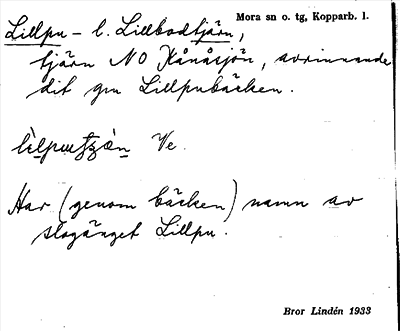 Mora sn o. tg, Kopparb. l.
Lillpu - l. Lillbodtjärn,
tjärn NO Kånåsjön, avrinnande
dit gm Lillpubäcken.
Ve.
Har (genom bäcken) namn av
slogänget Lillpu.
Bror Lindén 1933